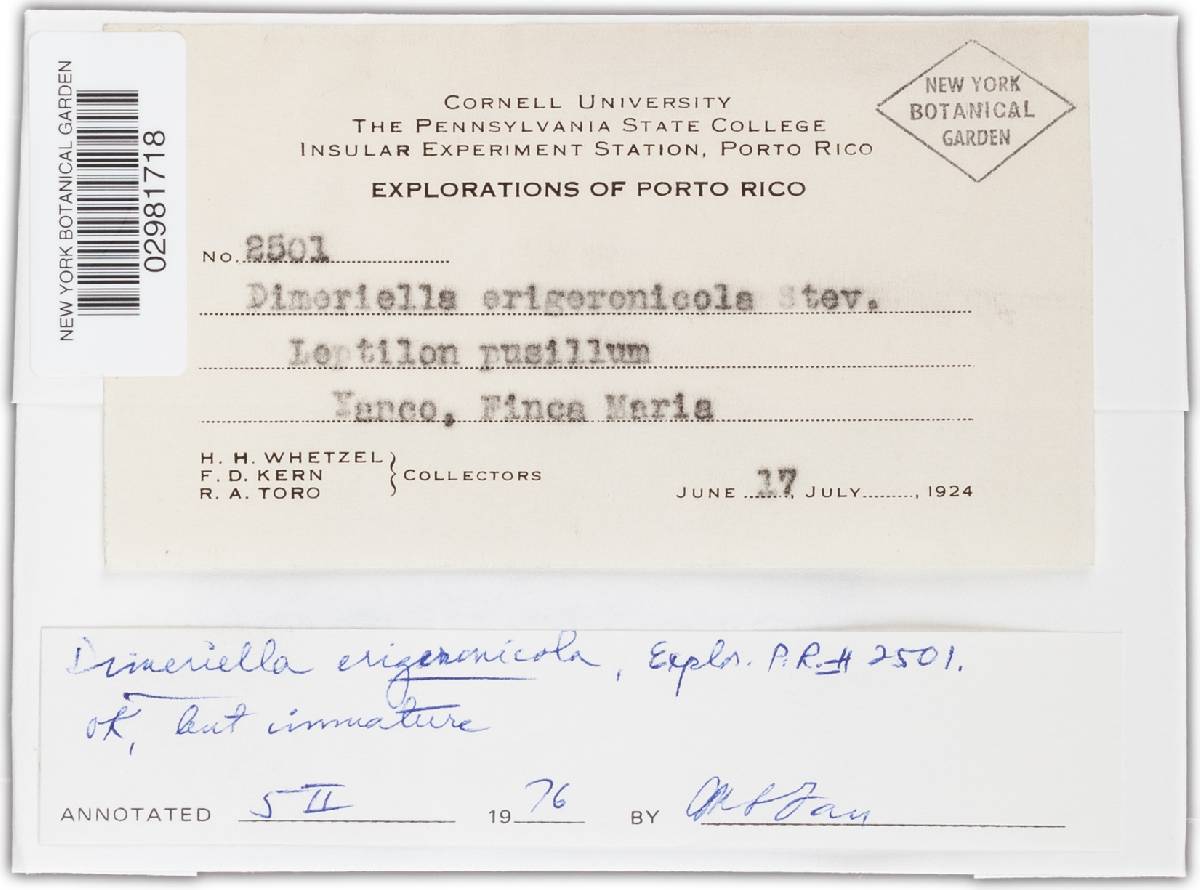 NEW YORK BOTANICAL GARDEN
02981718
NEW YORK
BOTANICAL
GARDEN
CORNELL UNIVERSITY
THE PENNSYLVANIA STATE COLLEGE
INSULAR EXPERIMENT STATION, PORTO RICO
EXPLORATIONS OF PORTO RICO
No. 2501
Dimeriella erigeronicola Stev.
Leptilon pusillum
Yanco, Finca Maria
H. H. WHETZEL
F. D. KERN } COLLECTORS
R. A. TORO
JUNE 17, JULY........, 1924
Dimeriella erigeronicola, Explor. P.R. # 2501.
ok, but immature
ANNOTATED 5 II 1976 BY